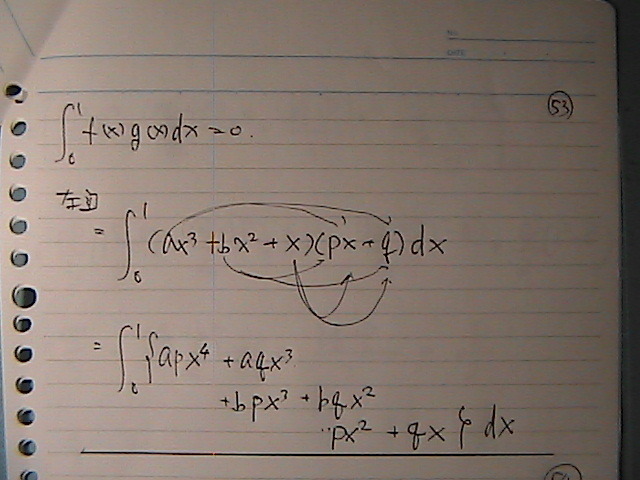 NO.
DATE
53
∫₀¹ f(x)g(x)dx=0.
左辺
= ∫₀¹ (ax³+bx²+x)(px+q)dx
= ∫₀¹ {apx⁴ + aqx³
+bpx³ + bqx²
px² + qx} dx